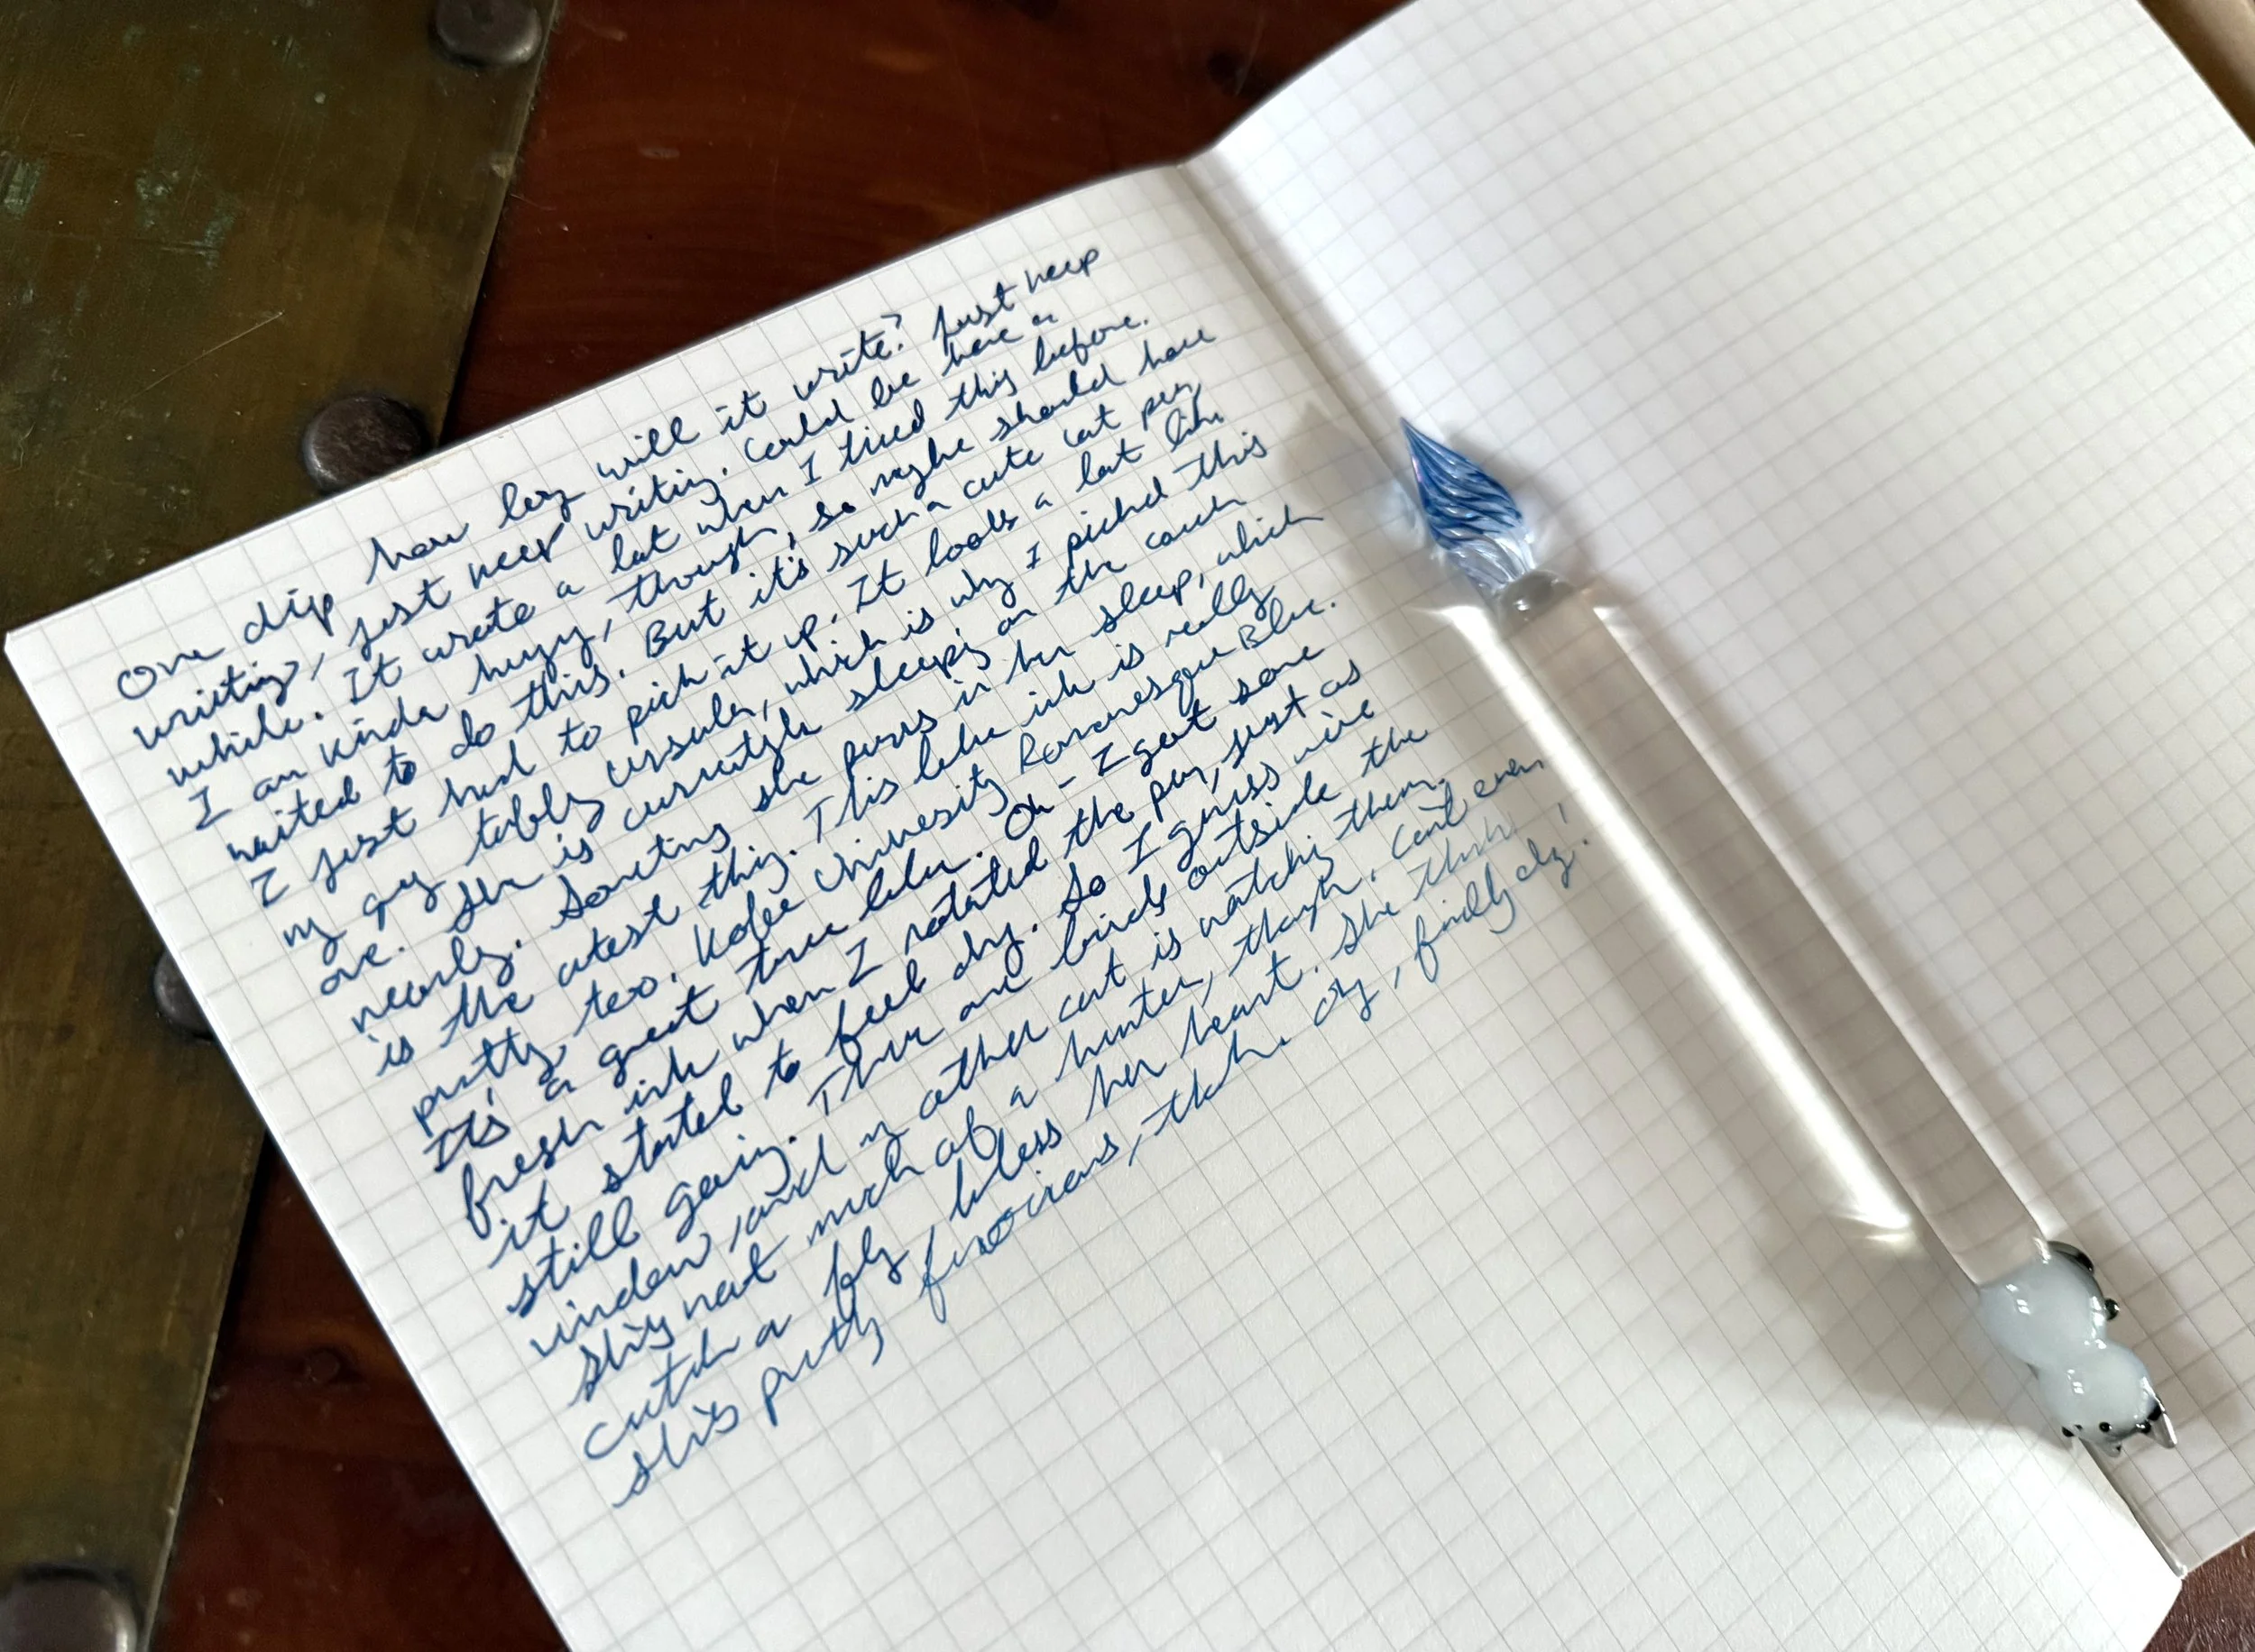 One dip how long will it write? Just keep
writing, just keep writing. Could be here a
while. It wrote a lot when I tried this before.
I am kinda hungry, though, so maybe should have
waited to do this. But it's such a cute cat pen,
I just had to pick it up. It looks a lot like
my grey tabby Ursula, which is why I picked this
one. She is currently sleeping on the couch
nearby. Sometimes she purrs in her sleep, which
is the cutest thing. This blue ink is really
pretty, too. Kobe University Romanesque Blue.
It's a great true blue. Oh - I got some
fresh ink when I rotated the pen, just as
it started to feel dry. So I guess we're
still going. There are birds outside the
window, and my other cat is watching them.
She's not much of a hunter, though. Can't even
catch a fly, bless her heart. She thinks
she's pretty ferocious, tho. Dry, finally dry!